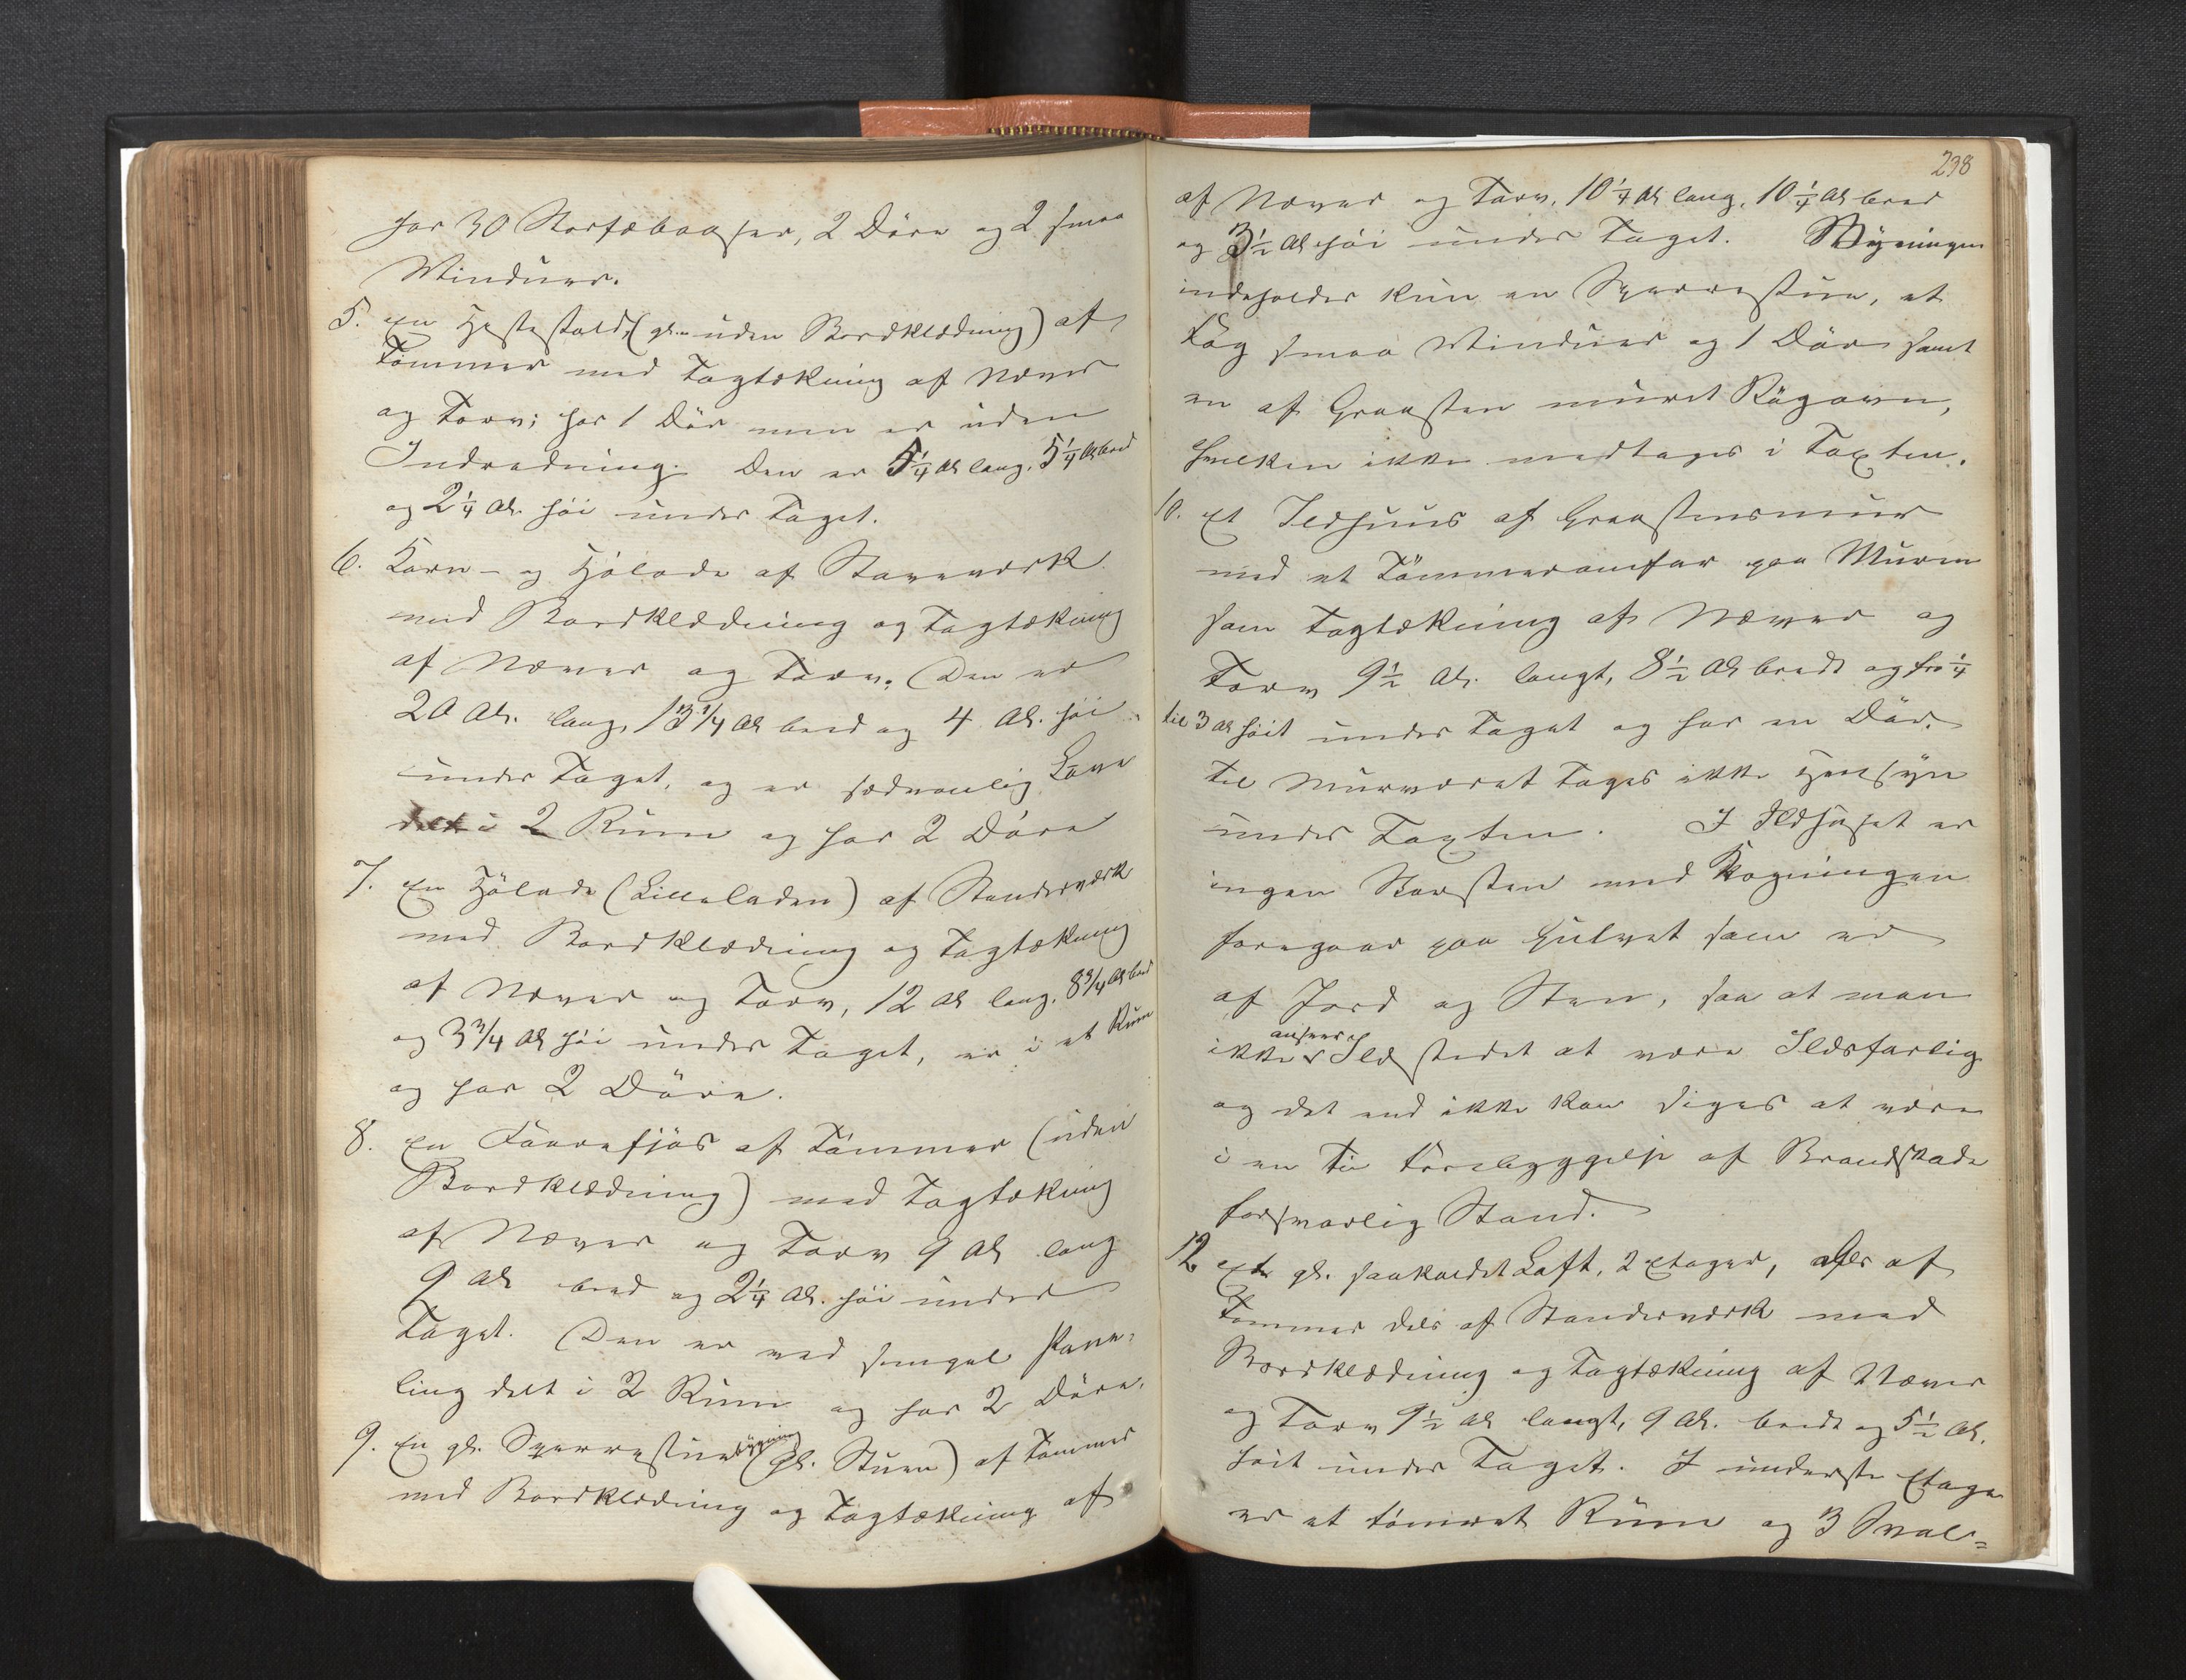 har 30 Storfæbaaser, 2 Döre og 2 smaa
Vinduer.
5. En Hestestald (gl. uden Bordklædning) af
Tømmer med Tagtækning af Næver
og Torv; har 1 Dör men er uden
Indredning. Den er 5 1/4 Al. lang, 5 1/4 Al bred
og 2 1/4 Al. höi under Taget.
6. Korn- og Hölade af Stavværk
med Bordklædning og Tagtækning
af Næver og Torv. Den er
20 Al. lang, 13 1/4 Al bred og 4 Al. höi
under Taget, og er sædvanlig Lave
delt i 2 Rum og har 2 Döre
7. En Hölade (Lilleladen) af Stenderværk
med Bordklædning og Tagtækning
af Næver og Torv, 12 Al lang, 8 3/4 Al bred
og 3 3/4 Al höi under Taget, er i et Rum
og har 2 Döre.
8. En Faarefjös af Tömmer (uden
Bordklædning) med Tagtækning
af Næver og Torv 9 Al lang
9 Al bred og 2 1/4 Al. höi under
Taget. Den er ved simpel Pane-
ling delt i 2 Rum og har 2 Döre.
9. En gl. Sperrestuebygning (gl. Stuen) af Tømmer
med Bordklædning og Tagtækning af
238
af Næver og Torv, 10 1/4 Al lang, 10 1/4 Al bred
og 3 1/2 Al höi under Taget. Bygningen
indeholder kun en Sperrestue, et
Fag smaa Vinduer og 1 Dör samt
en af Graasten muret Rögovn,
hvilken ikke medtages i Taxten.
10. Et Ildhuus af Graastensmuur
med et Tömmeromfar paa Muren
som Tagtækning af Næver og
Torv 9 1/2 Al. langt, 8 1/2 Al bredt og fra 1/4
til 3 Al höit under Taget og har en Dör.
Til Murværket tages ikke Hensyn
under Taxten. I Ildhuset er
ingen Skorsten med Kogningen
foregaar paa Gulvet som er
af Jord og Sten, saa at man
ikke anseer Ildstedet at være Ildsfarlig
og det end ikke kan siges at være
i en til Forebyggelse af Brandskade
forsvarlig Stand.
12. Et gl. saakaldet Loft, 2 Etager, dels af
Tømmer dels af Stenderværk med
Bordklædning og Tagtækning af Næver
og Torv 9 1/2 Al langt, 9 Al. bredt og 5 1/2 Al.
höit under Taget. I underste Etage
er et tömret Rum og 3 Sval-